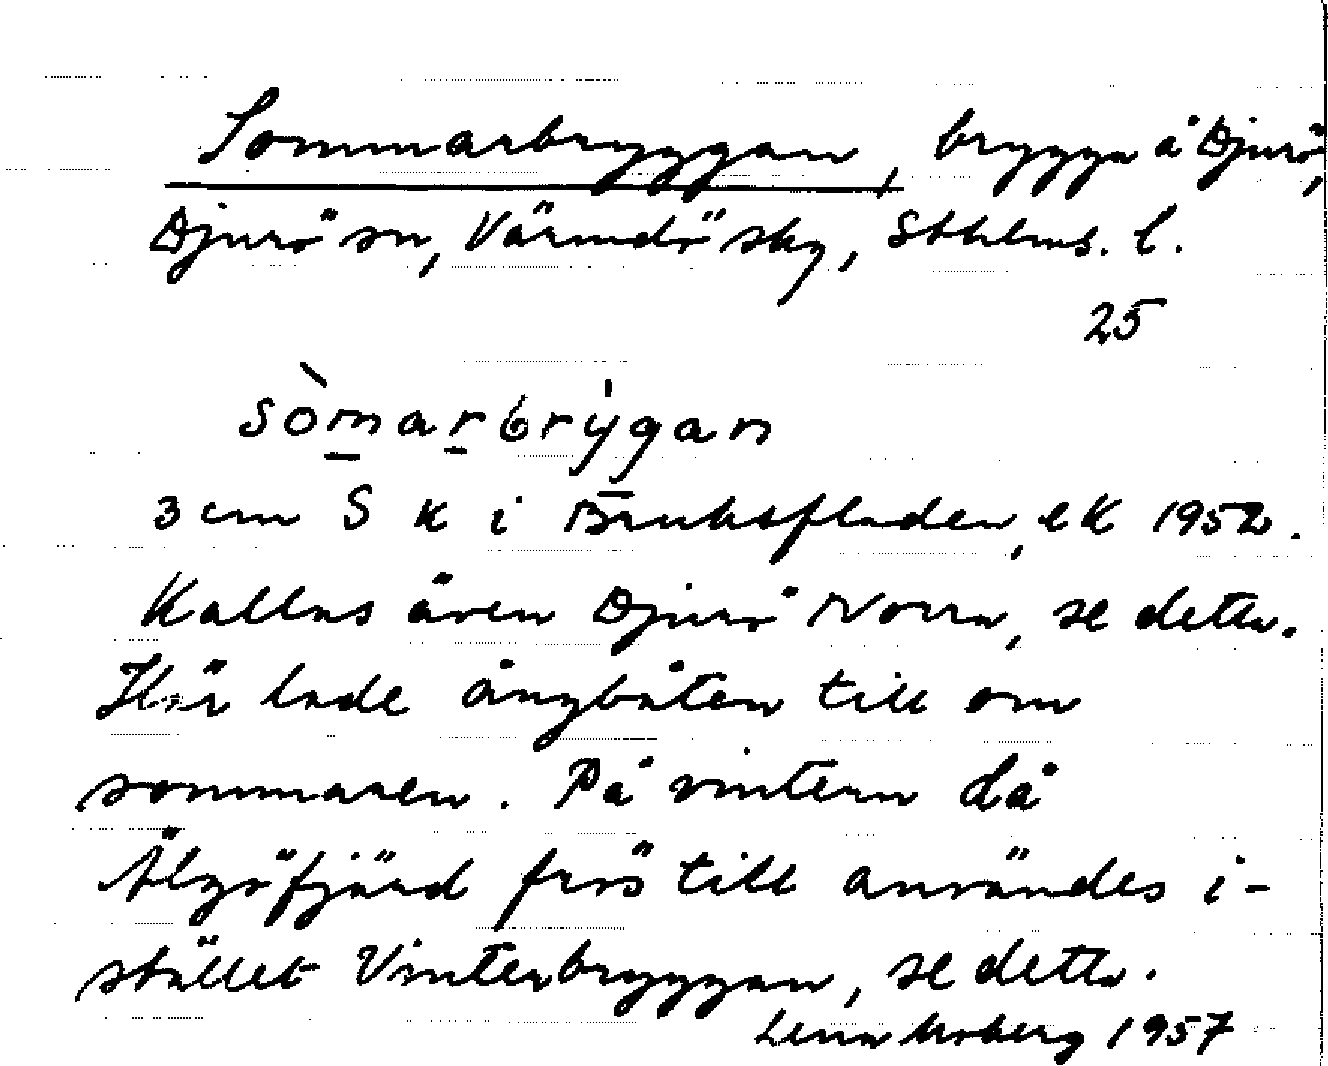 Sommarbryggan, brygga å Djurö,
Djurö sn, Värmdö skg, Sthlms. l.
25
sòmarbrýgan
3 cm S K i Bruksfladen, ek 1952.
Kallas även Djurö Norra, se detta.
Här lade ångbåten till om
sommaren. På vintern då
Älgöfjärd frös till användes i-
stället Vinterbryggan, se detta.
Lena Moberg 1957